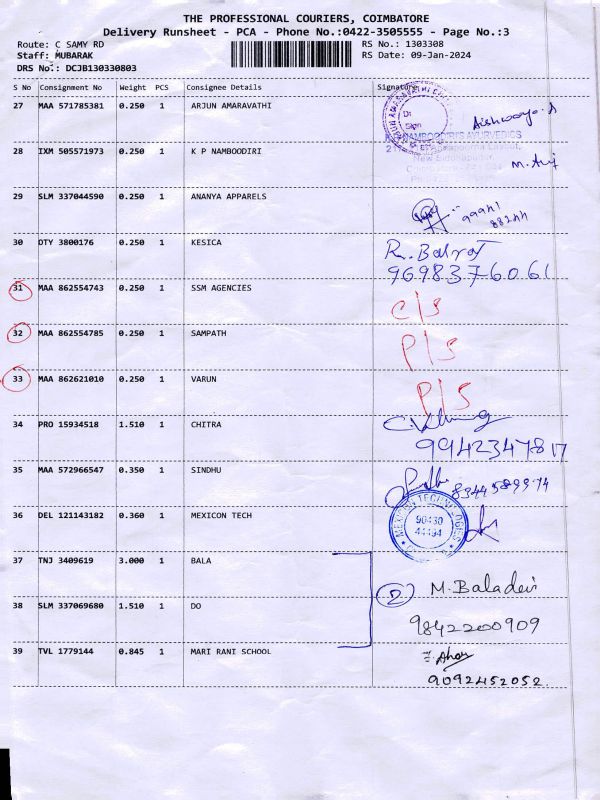 THE PROFESSIONAL COURIERS, COIMBATORE
Delivery Runsheet - PCA - Phone No.:0422-3505555 - Page No.:3
Route: C SAMY RD RS No.: 1303308
Staff: MUBARAK RS Date: 09-Jan-2024
DRS No.: DCJB130330803
S No Consignment No Weight PCS Consignee Details Signature
27 MAA 571785381 0.250 1 ARJUN AMARAVATHI
28 IXM 505571973 0.250 1 K P NAMBOODIRI
NAMBOODIRI'S AYURVEDICS
29 SLM 337044590 0.250 1 ANANYA APPARELS
30 OTY 3800176 0.250 1 KESICA
9698376061
31 MAA 862554743 0.250 1 SSM AGENCIES C/S
32 MAA 862554785 0.250 1 SAMPATH P/S
33 MAA 862621010 0.250 1 VARUN P/S
34 PRO 15934518 1.510 1 CHITRA
9942347817
35 MAA 572966547 0.350 1 SINDHU
36 DEL 121143182 0.360 1 MEXICON TECH
MEXICON TECHNOLOGIES
90430
44494
37 TNJ 3409619 3.000 1 BALA
2 M. Baladevi
38 SLM 337069680 1.510 1 DO
9842200909
39 TVL 1779144 0.845 1 MARI RANI SCHOOL
9092452052